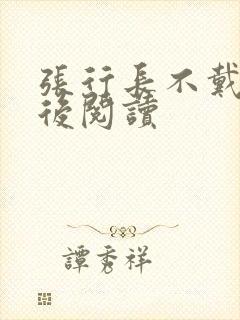 張行長不戴
後閱讀
譚秀祥